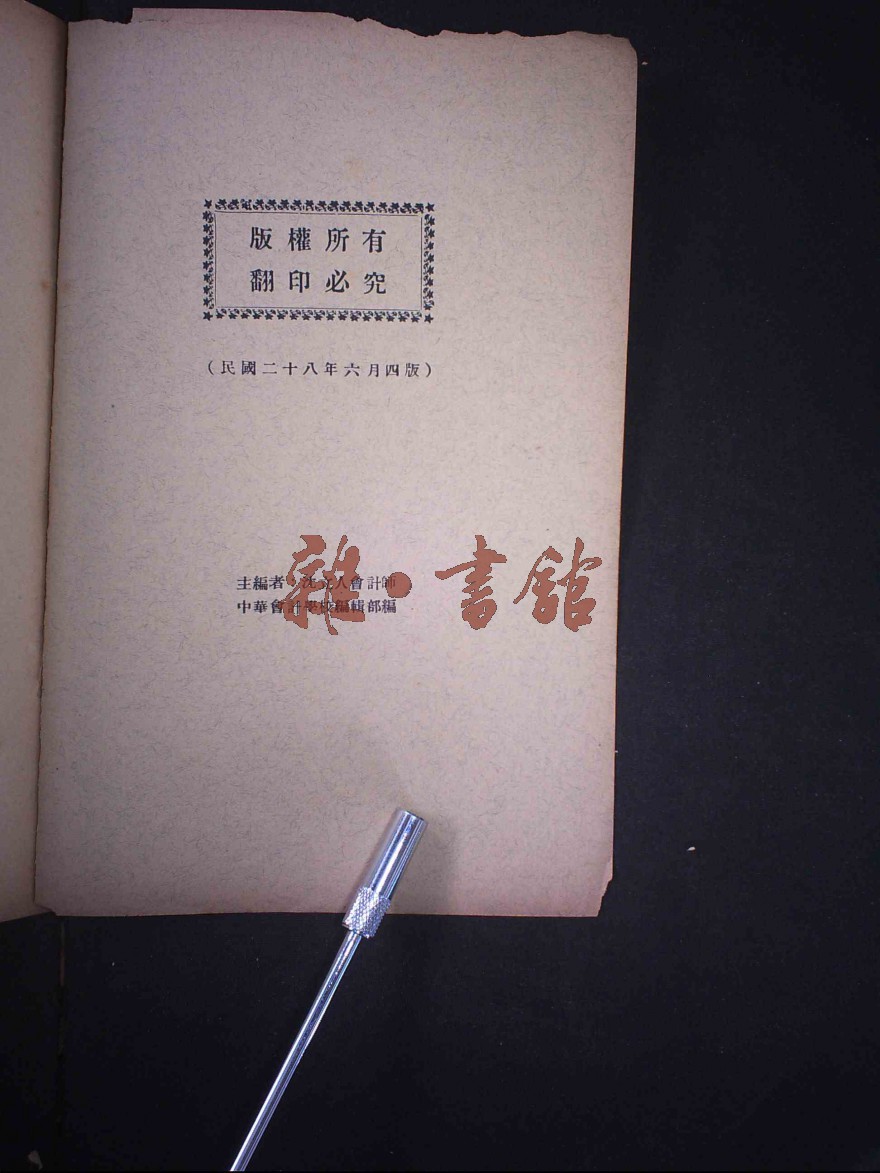 版權所有
翻印必究
(民國二十八年六月四版)
主編者：沈立人會計師
中華會計學校編輯部編
雜·書館